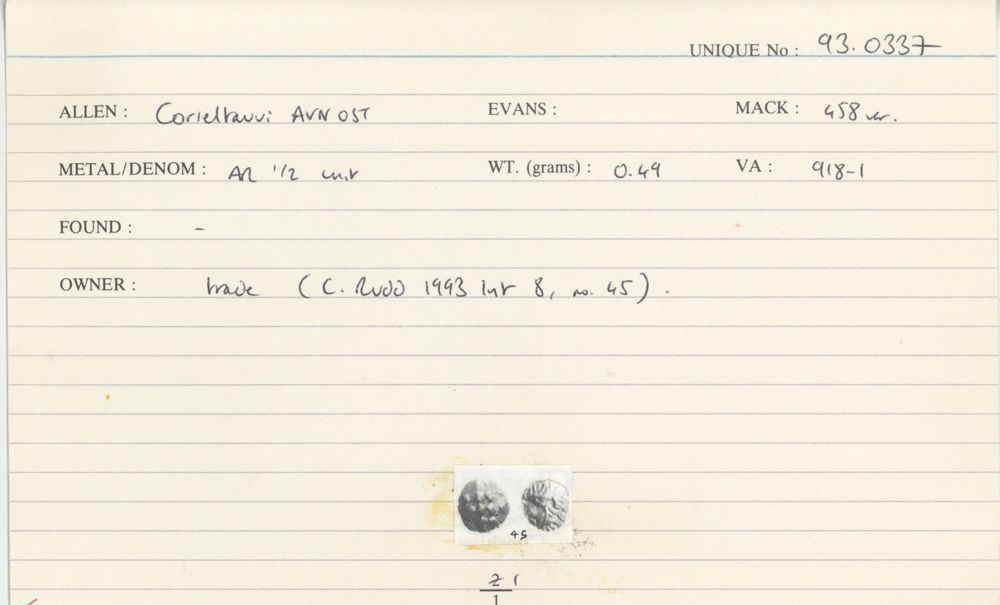 UNIQUE No : 93.0337
ALLEN : Corieltauvi AVN OST EVANS : MACK : 458 var.
METAL/DENOM : AR 1/2 unit WT. (grams) : 0.49 VA : 918-1
FOUND : -
OWNER : trade (C. RUDD 1993 list 8, no. 45).
45
2 1
1